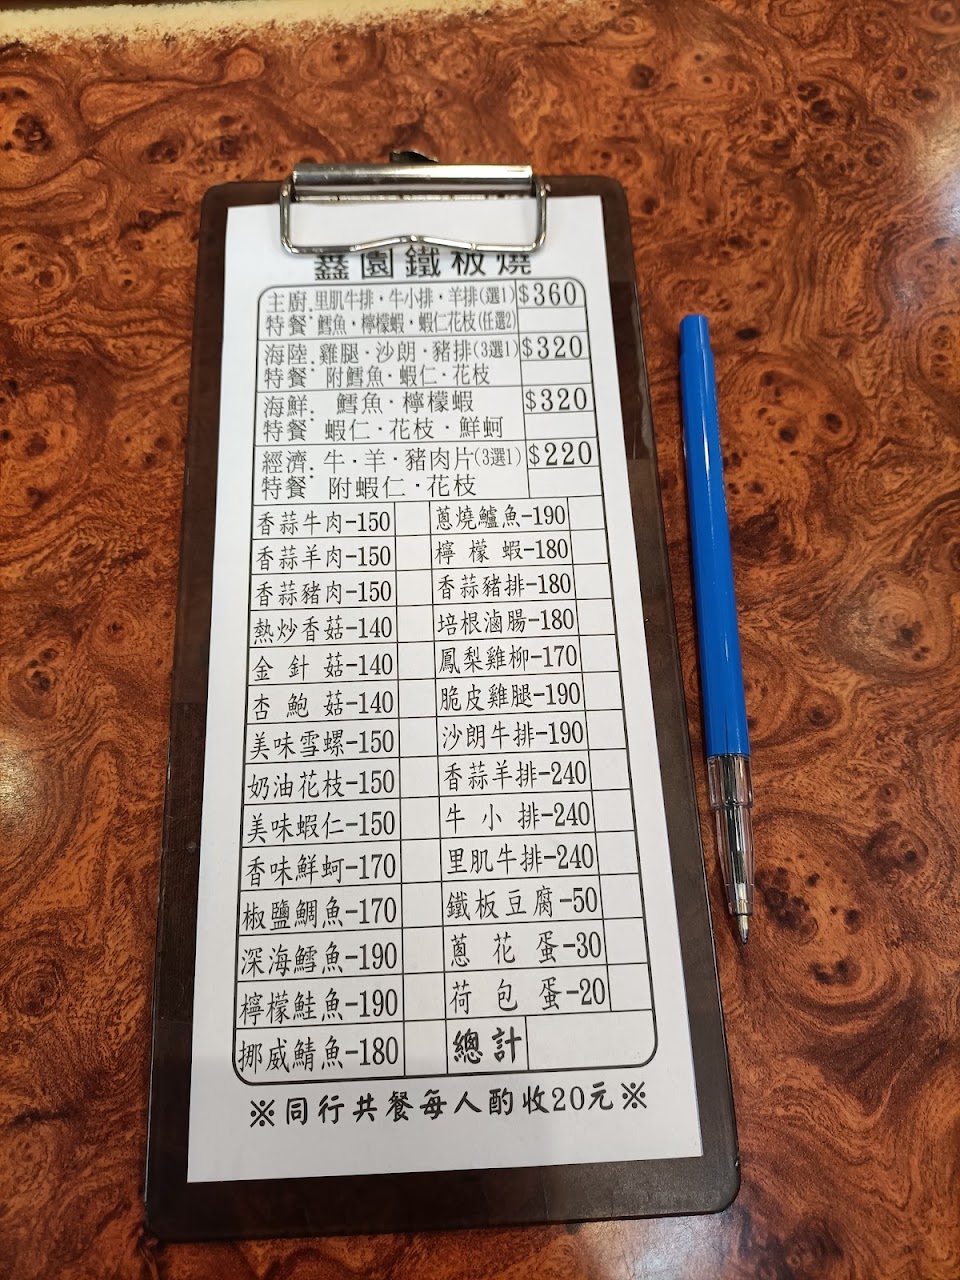 鑫園鐵板燒
主廚.里肌牛排·牛小排·羊排(選1) $360
特餐·鱈魚·檸檬蝦·蝦仁花枝(任選2)
海陸.雞腿·沙朗·豬排(3選1) $320
特餐·附鱈魚·蝦仁·花枝
海鮮.鱈魚·檸檬蝦 $320
特餐·蝦仁·花枝·鮮蚵
經濟.牛·羊·豬肉片(3選1) $220
特餐·附蝦仁·花枝
香蒜牛肉-150 蔥燒鱸魚-190
香蒜羊肉-150 檸檬蝦-180
香蒜豬肉-150 香蒜豬排-180
熱炒香菇-140 培根滷腸-180
金針菇-140 鳳梨雞柳-170
杏鮑菇-140 脆皮雞腿-190
美味雪螺-150 沙朗牛排-190
奶油花枝-150 香蒜羊排-240
美味蝦仁-150 牛小排-240
香味鮮蚵-170 里肌牛排-240
椒鹽鯛魚-170 鐵板豆腐-50
深海鱈魚-190 蔥花蛋-30
檸檬鮭魚-190 荷包蛋-20
挪威鯖魚-180 總計
※同行共餐每人酌收20元※